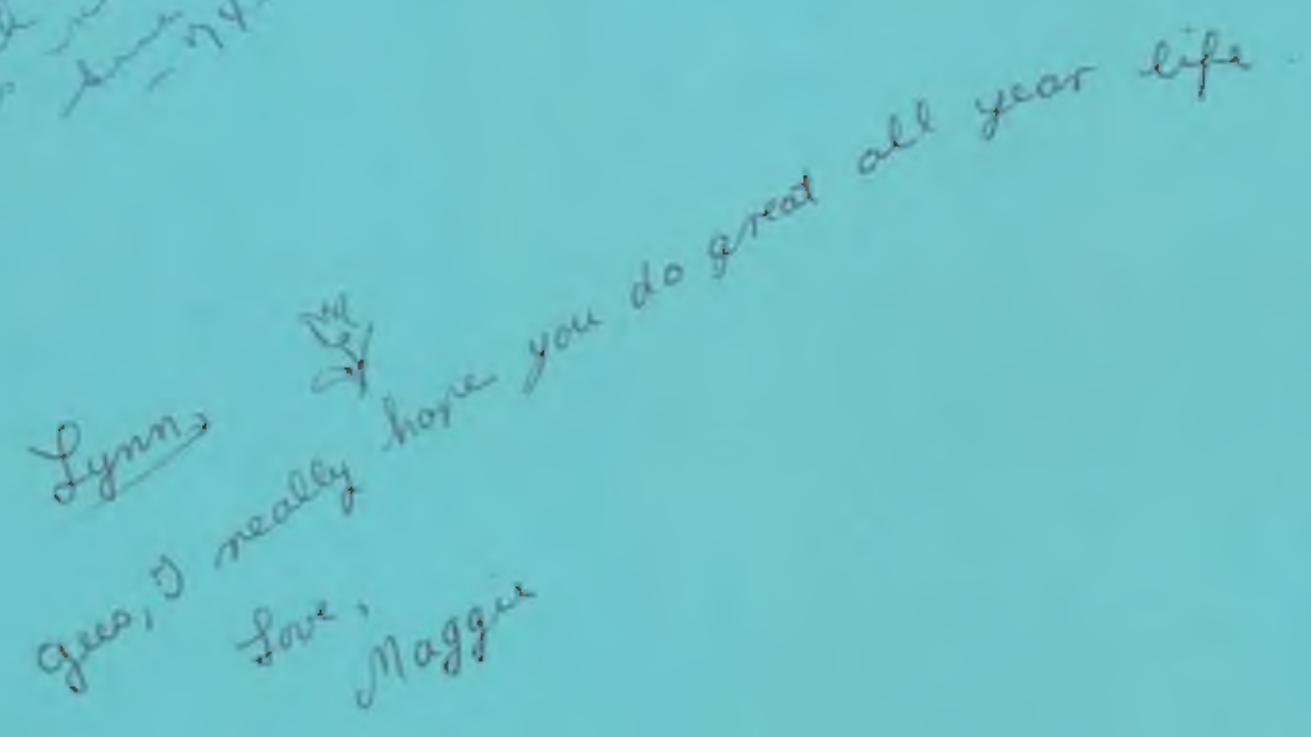 Lynn,
Gees, I really hope you do great all year life.
Love,
Maggie